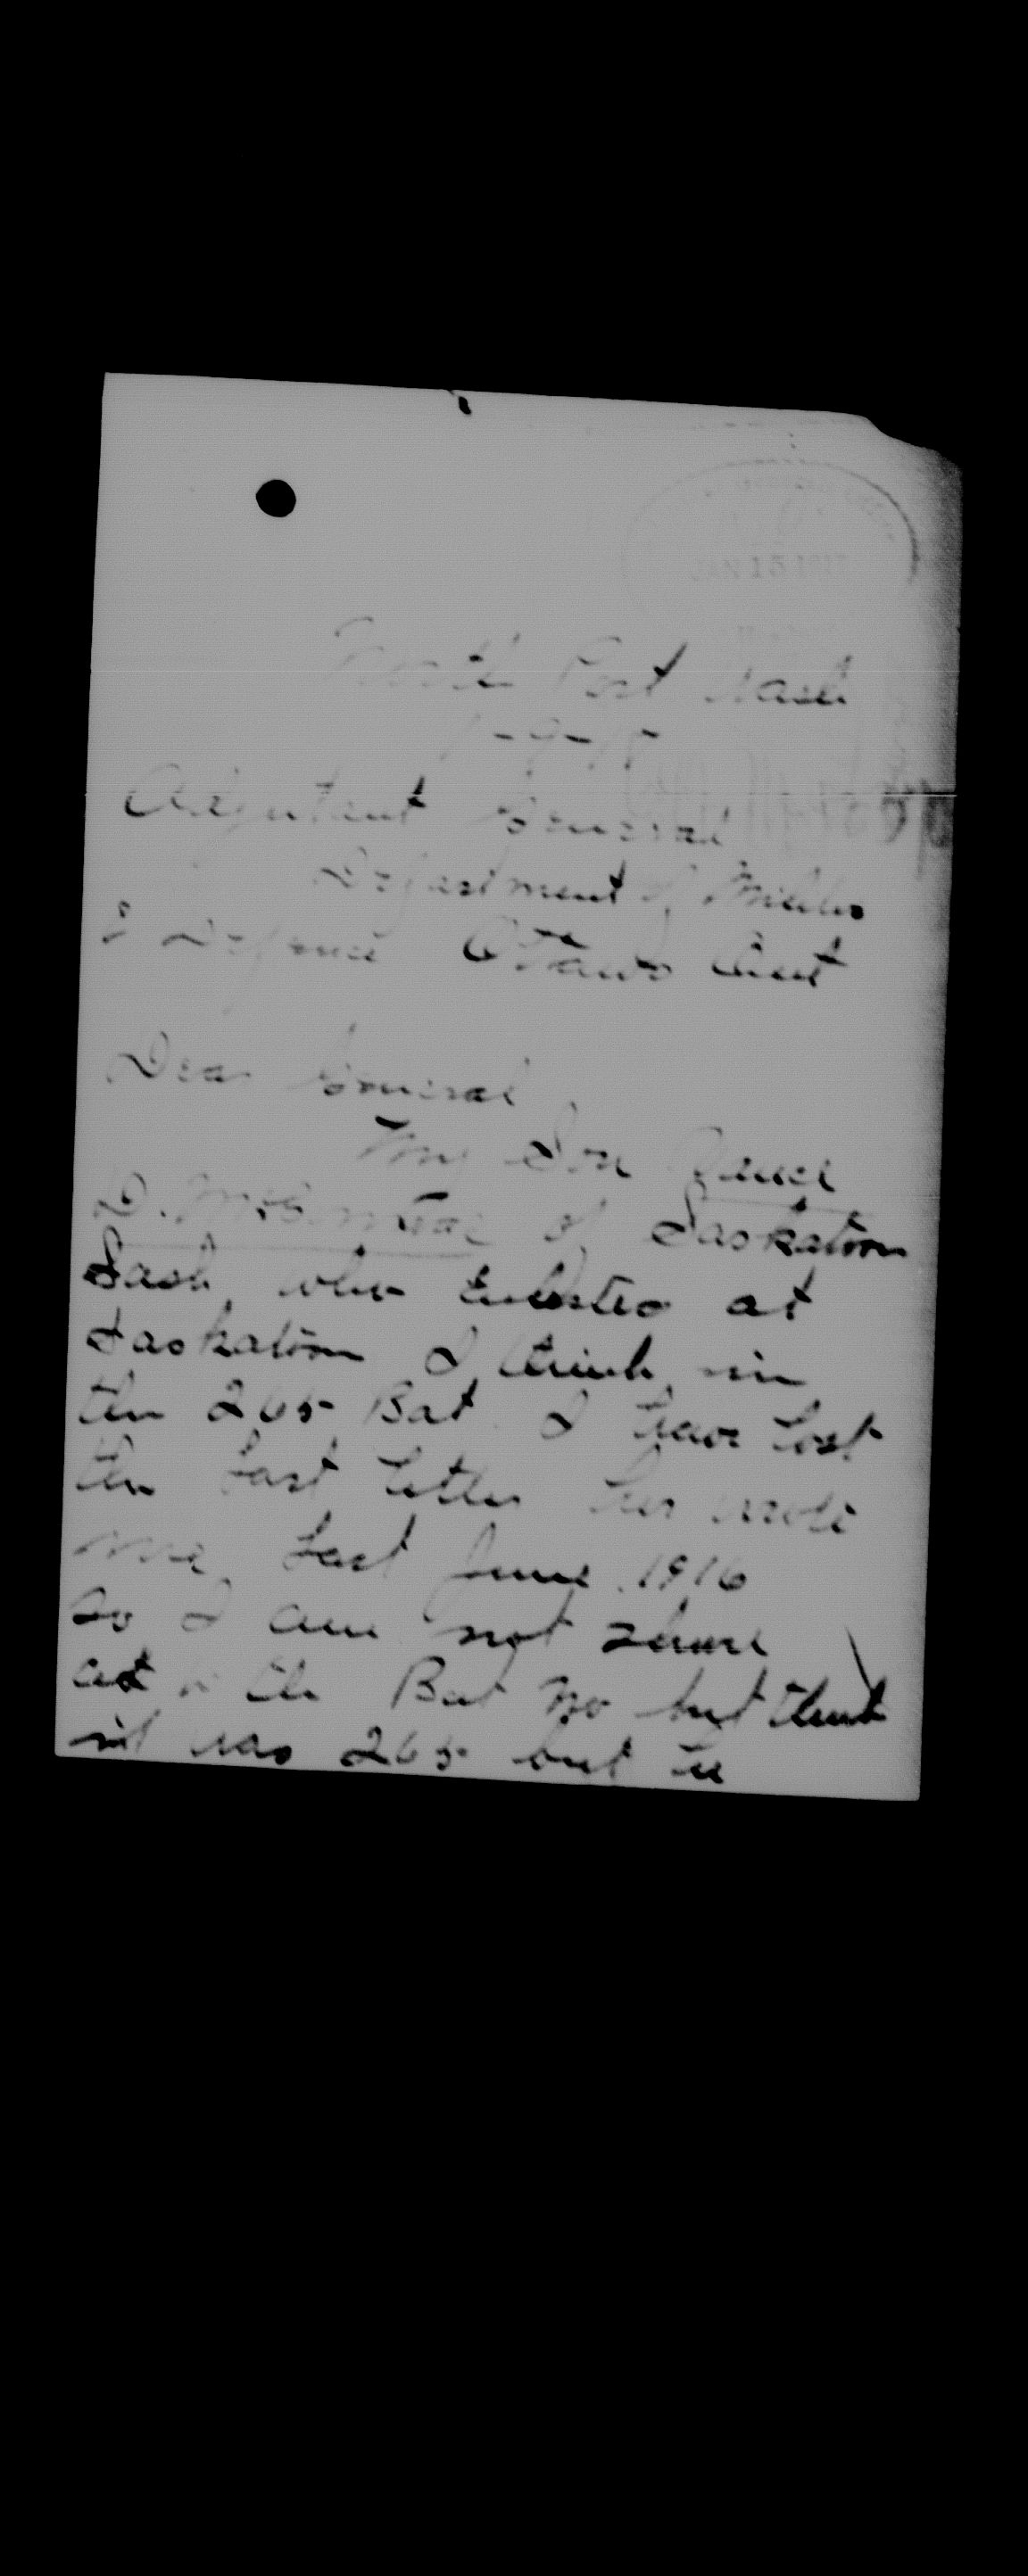 JAN 15 1917
North Port Wash
1-9-17
Adjutant General
Department of Militia
& Defence Ottawa Ont
Dear General
My Son
D. of Saskatoon
Sask who Enlisted at
Saskatoon I think in
the 265 Bat. I have Lost
the Last Letter her wrote
me Last June 1916
so I am not shure
as to the Bat No but think
it was 265 but he